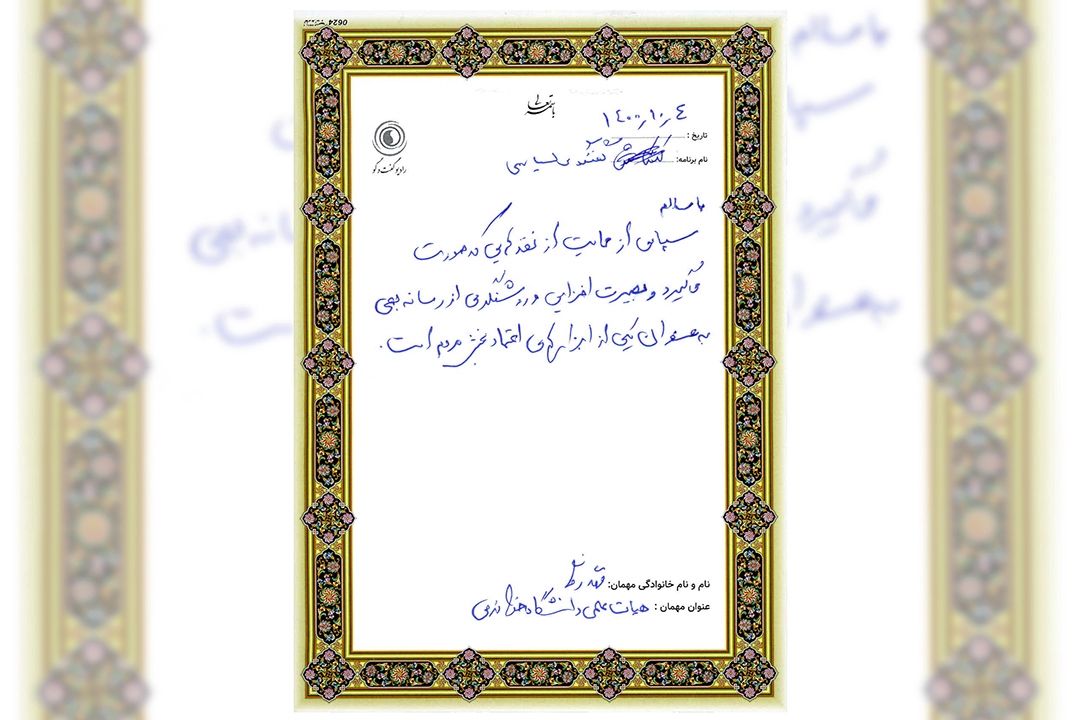 باسمه تعالی
رادیو گفت و گو
تاریخ: ۱۴۰۰٫۱۰٫۴
نام برنامه: گفتگوی سیاسی
با سلام
سپاس از حمایت از نقدهایی که صورت
می‌گیرد و بصیرت افزایی و روشنگری از رسانه
به عنوان یکی از ابزارهای اعتماد بخش مردم است.
نام و نام خانوادگی مهمان:
عنوان مهمان: هیات علمی دانشگاه